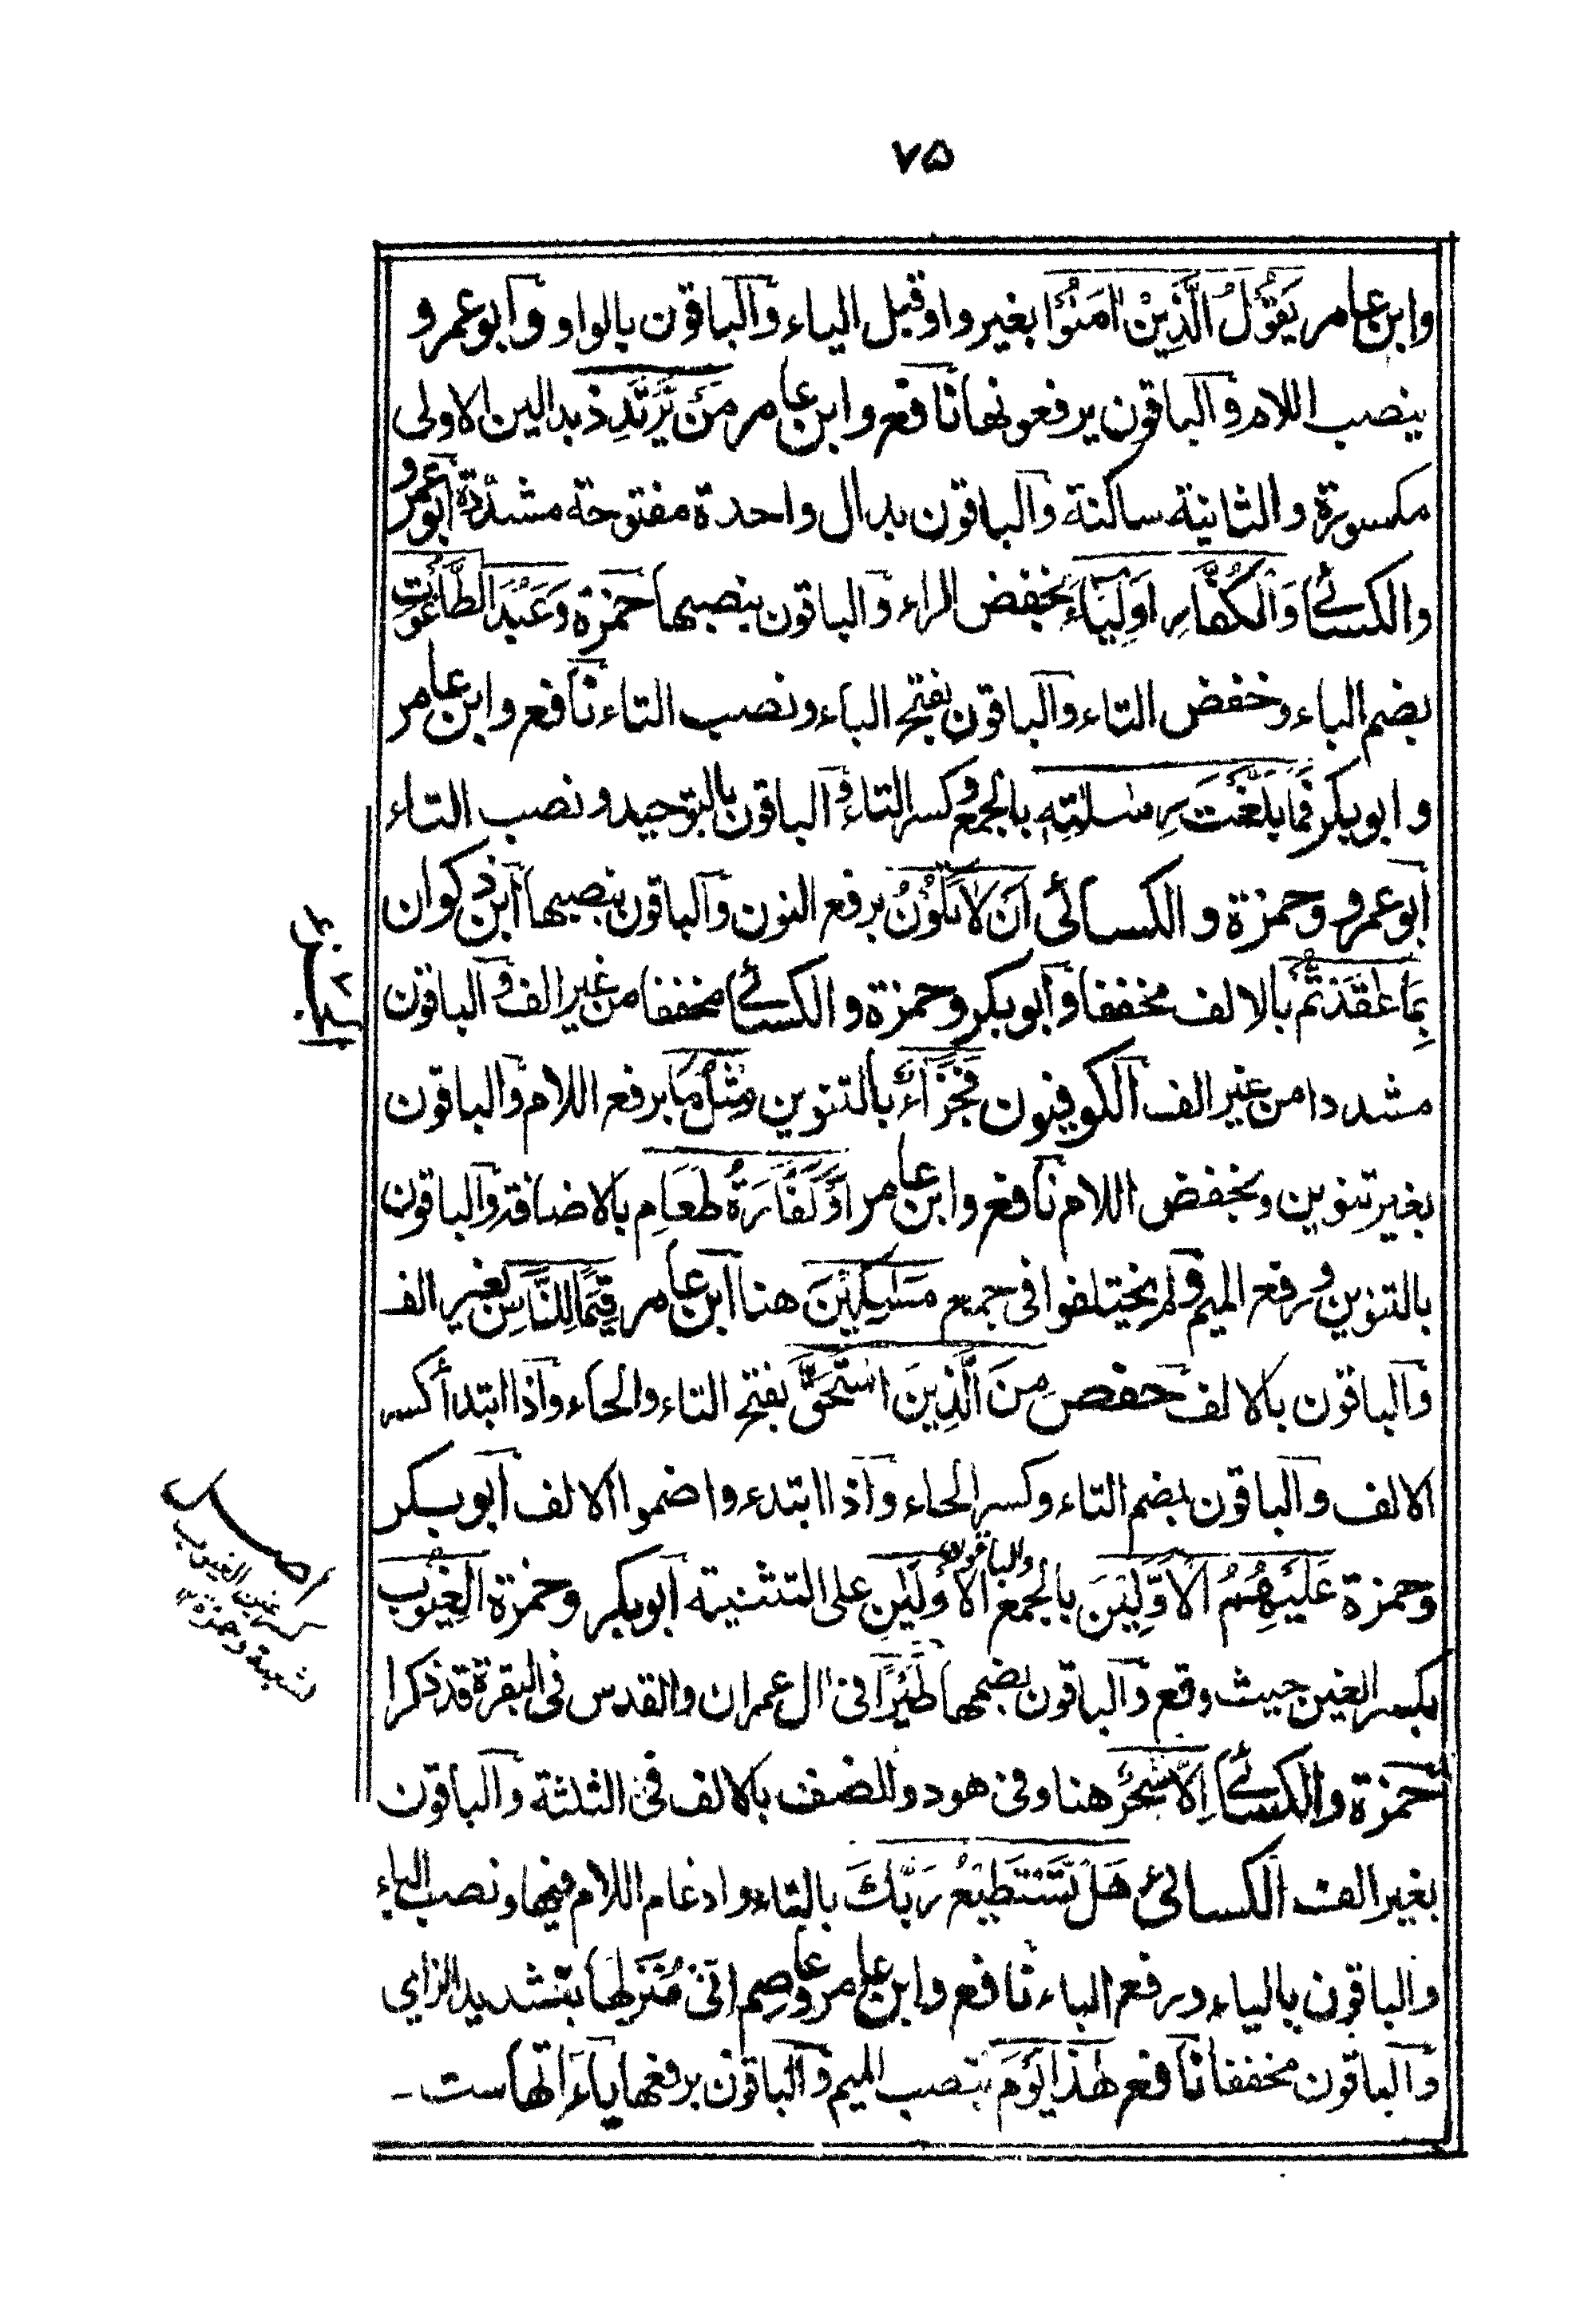 ۷۵
وابن عامر يَقُوْلُ الَّذِيْنَ اٰمَنُوْا بغير واو قبل الياء والباقون بالواو وابو عمرو
ينصب اللام والباقون يرفعونها نافع وابن عامر مَنْ يَّرْتَدِدْ بدالين الاولى
مكسورة والثانية ساكنة والباقون بدال واحدة مفتوحة مشددة ابو عمرو
والكسائي وَالْكُفَّارِ اَوْلِيَاءَ بخفض الراء والباقون ينصبها حمزة وَعَبُدَ الطَّاغُوْتِ
بضم الباء وخفض التاء والباقون بفتح الباء ونصب التاء نافع وابن عامر
وابوبكر فَمَا بَلَّغْتَ رِسٰلٰتِهٖ بالجمع وكسر التاء والباقون بالتوحيد ونصب التاء
ابو عمرو وحمزة والكسائى اَنْ لَّا تَكُوْنُ برفع النون والباقون بنصبها ابن ذكوان
بِمَا عٰقَدْتُّمُ بالالف مخففا وابوبكر وحمزة والكسائي مخففا من غير الف والباقون
مشددا من غير الف الكوفيون فَجَزَاءٌ بالتنوين مِّثْلُ مَا برفع اللام والباقون
بغير تنوين وبخفض اللام نافع وابن عامر اَوْ كَفَّارَةُ طَعَامِ بالاضافة والباقون
بالتنوين ورفع الميم ولم يختلفوا فى جمع مَسٰكِيْنَ هنا ابن عامر قِيَمًا لِّلنَّاسِ بغير الف
والباقون بالالف حفص مِنَ الَّذِيْنَ اسْتَحَقَّ بفتح التاء والحاء واذا ابتدأ كسر
الالف والباقون بضم التاء وكسر الحاء واذا ابتدءوا ضموا الالف ابوبكر
وحمزة عَلَيْهِمُ الْاَوَّلِيْنَ بالجمع والباقون الْاَوْلَيٰنِ على التثنية ابوبكر وحمزة الْغِيُوْبِ
بكسر الغين حيث وقع والباقون بضمها طَيْرًا فى ال عمران والقدس فى البقرة قد ذكرا
حمزة والكسائي اِلَّا سٰحِرٌ هنا وفى هود والصف بالالف فى الثلثة والباقون
بغير الف الكسائى هَلْ تَسْتَطِيْعُ رَبَّكَ بالتاء وادغام اللام فيها ونصب الباء
والباقون بالياء ورفع الباء نافع وابن عامر وعاصم اِنِّى مُنَزِّلُهَا بتشديد الزاى
والباقون مخففا نافع هٰذَا يَوْمَ بنصب الميم والباقون برفعها ياءاتها ست۔
كسر غين الغيوب
شعبة وحمزة ۱۲